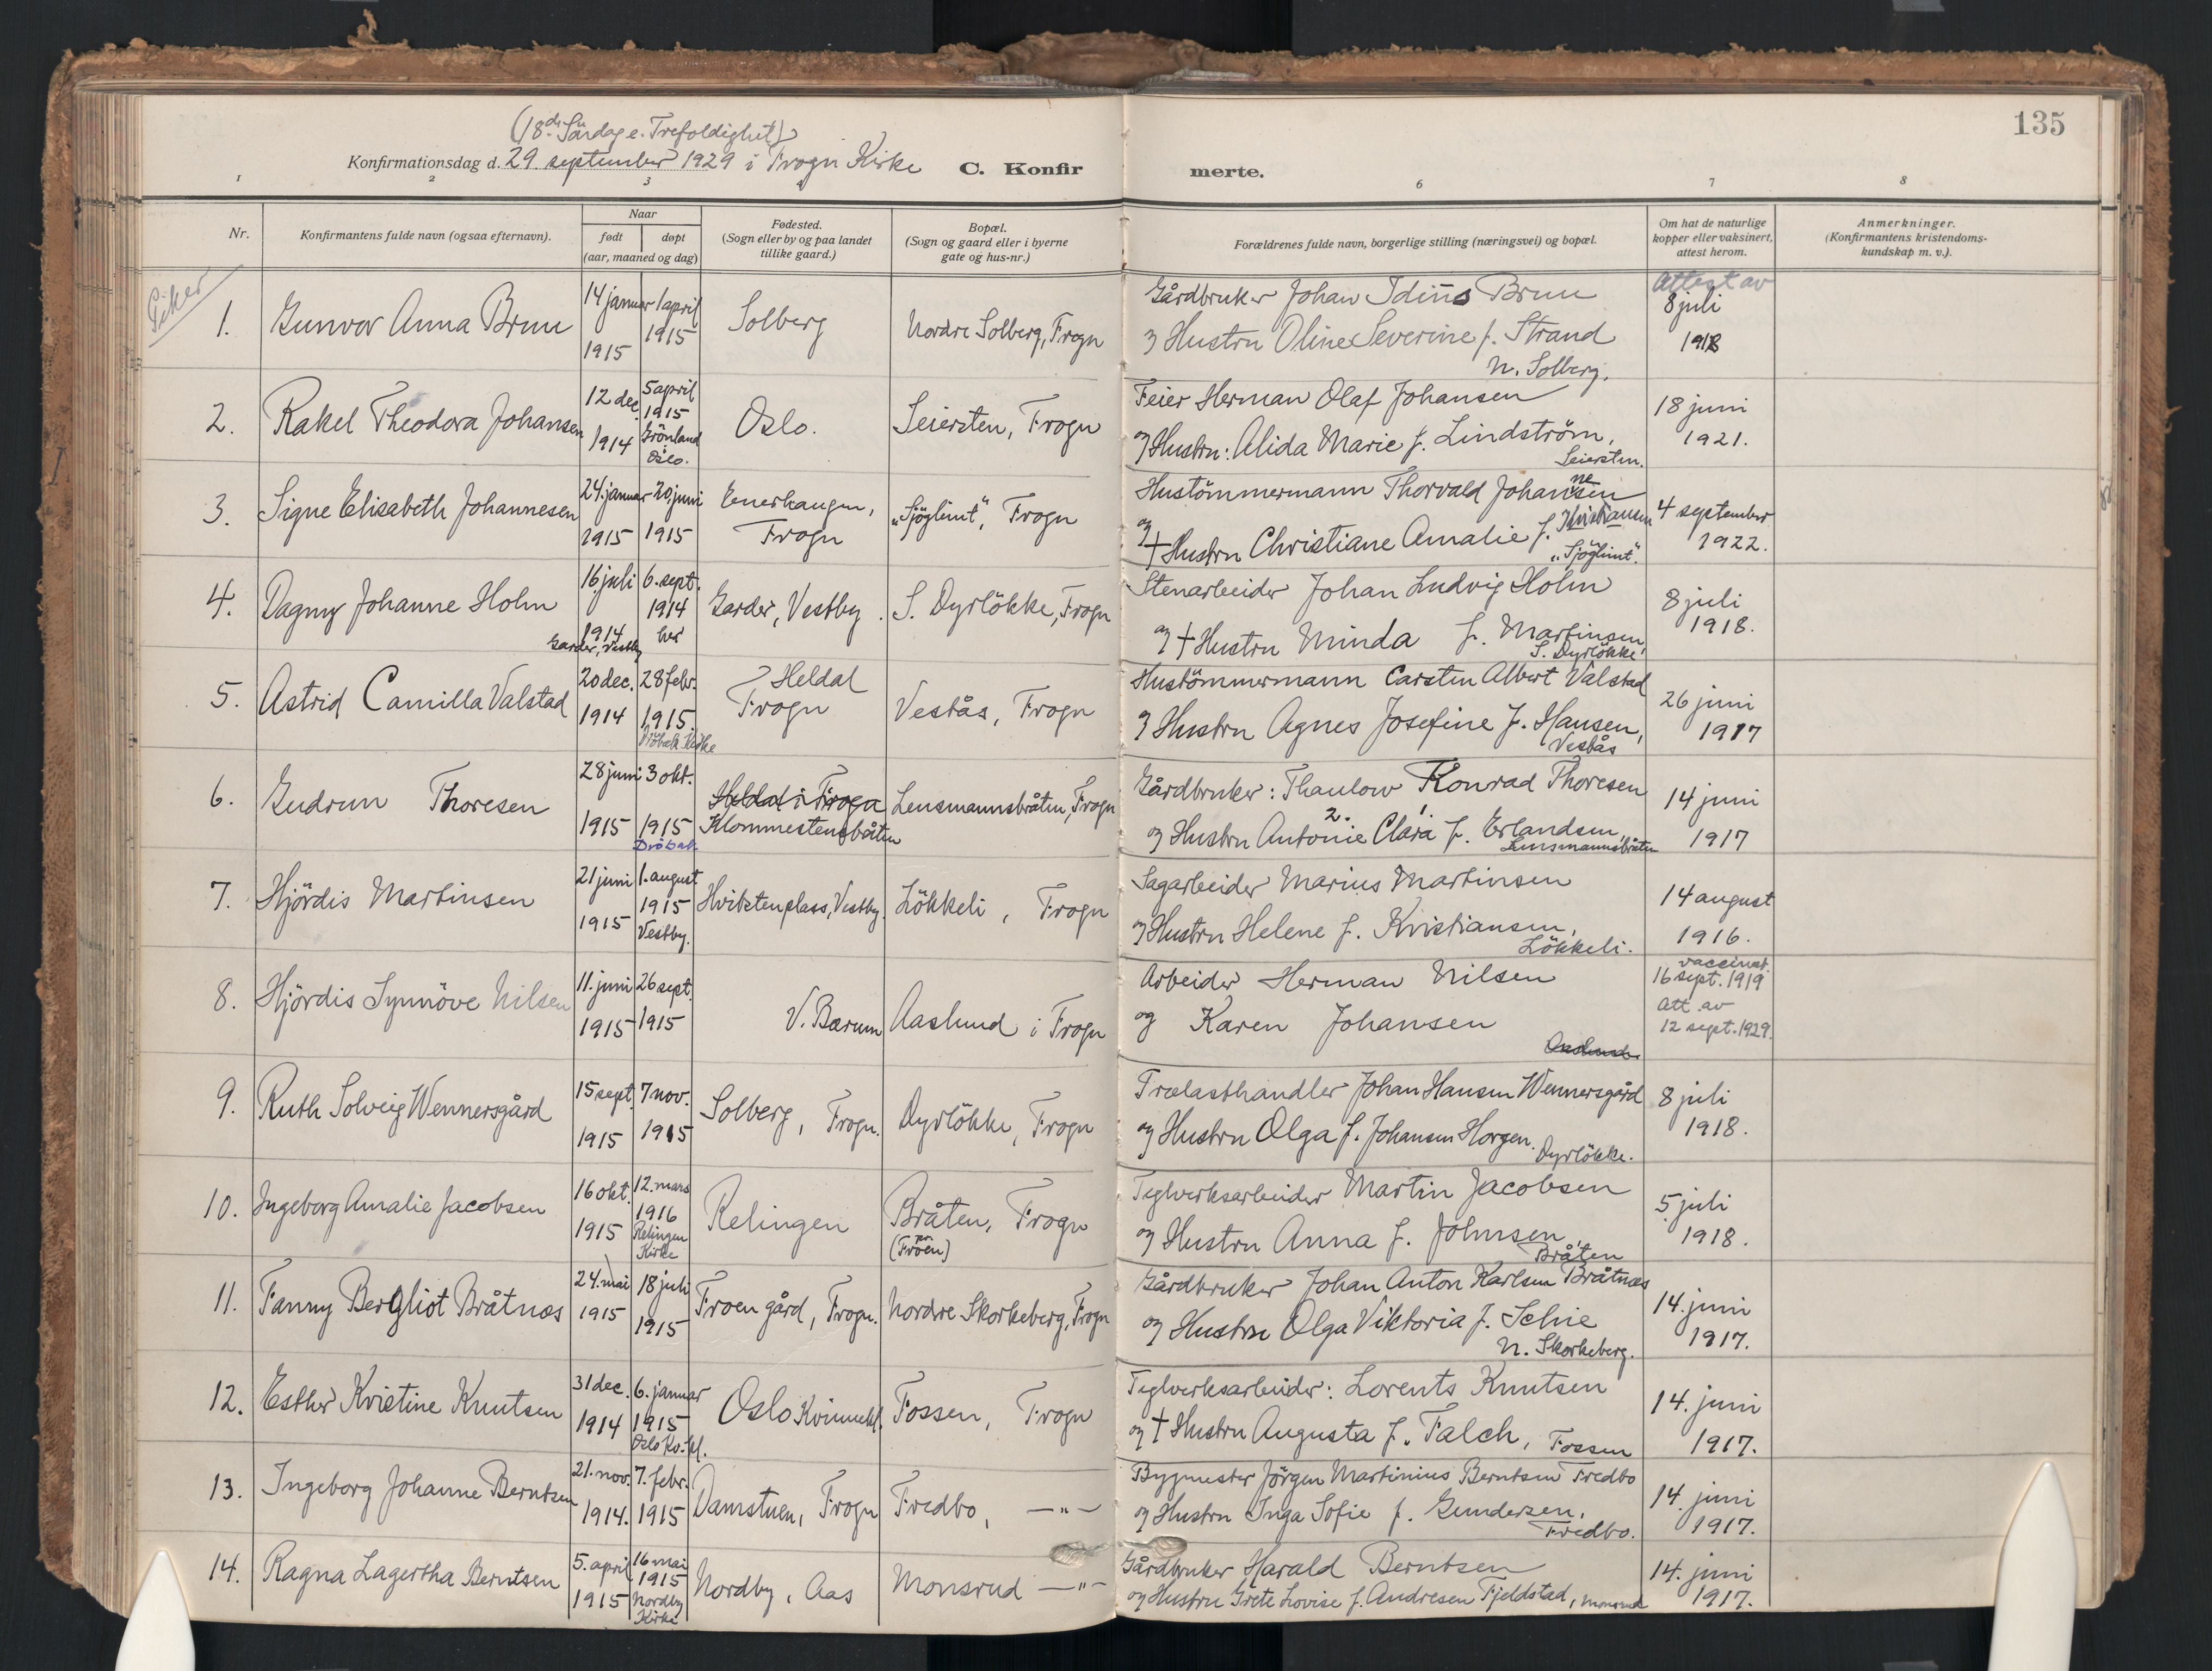 135
(18de Søndag e. Trefoldighet)
Konfirmationsdag d. 29. september 1929 i Frogn Kirke C. Konfir merte.
1 2 3 4 6 7 8
Nr.
Konfirmantens fulde navn (ogsaa efternavn).
Naar
født døpt
(aar, maaned og dag)
Fødested.
(Sogn eller by og paa landet
tillike gaard.)
Bopæl.
(Sogn og gaard eller i byerne
gate og hus-nr.)
Forældrenes fulde navn, borgerlige stilling (næringsvei) og bopæl.
Om hat de naturlige
kopper eller vaksinert,
attest herom.
Anmerkninger.
(Konfirmantens kristendoms-
kundskap m. v.).
Piker
1. Gunvor Anna Brun
14 januar 1915
1 april 1915
Solberg
Nordre Solberg, Frogn
Gårdbruker Johan Brun
og Hustru Oline Severine f. Strand
N. Solberg.
Attest av
8 juli
1918
2. Rakel Theodora Johansen
12 dec. 1914
5 april
1915
Grönland
Oslo.
Oslo.
Seiersten, Frogn
Feier Herman Olaf Johansen
og Hustru: Alida Marie f. Lindström,
Seiersten.
18 juni
1921.
3. Signe Elisabeth Johannesen
24. januar 1915
20. juni 1915
Enerhaugen,
Frogn
"Sjöglimt", Frogn
Hustömmermann Thorvald Johannesen
og
† Hustru Christiane Amalie f. Kristiansen
"Sjöglimt".
4 september
1922.
4. Dagny Johanne Holm
16 juli
1914
Garder, Vestby
6. sept.
1914
her
Garder, Vestby.
S. Dyrlökke, Frogn
Stenarbeider Johan Ludvig Holm
og † Hustru Minda f. Martinsen,
S. Dyrlökke
8 juli
1918.
5. Astrid Camilla Valstad
20 dec. 1914
28 febr. 1915.
Dröbak Kirke
Heldal
Frogn
Vestås, Frogn
Hustömmermann Carsten Albert Valstad
og Hustru Agnes Josefine f. Hansen,
Vestås
26 juni
1917
6. Gudrun Thoresen
28 juni 1915
3 okt. 1915
Dröbak
Heldal i Frogn
Klommestensbåten
Lensmannsbråten, Frogn
Gårdbruker: Thaulow Konrad Thoresen
2. 1.
og Hustru Antonie Clara f. Erlandsen,
Lensmannsbråten
14 juni
1917
7. Hjördis Martinsen
21 juni 1915
1. august
1915
Vestby.
Hvitstenplass, Vestby.
Lökkeli, Frogn
Sagarbeider Marius Martinsen
og Hustru Helene f. Kristiansen,
Lökkeli.
14 august
1916.
8. Hjördis Synnöve Nilsen
11. juni 1915
26 sept. 1915
V. Bærum
Aaslund i Frogn
Arbeider Herman Nilsen
og Karen Johansen
Aaslund.
vaccinat.
16 sept. 1919
Att. av
12 sept. 1929.
9. Ruth Solveig Wennersgård
15 sept. 1915
7 nov. 1915
Solberg, Frogn.
Dyrlökke, Frogn
Trælasthandler Johan Hansen Wennersgård
og Hustru Olga f. Johansen Horgen.
Dyrlökke.
8 juli
1918.
10. Ingeborg Amalie Jacobsen
16 okt. 1915
12. mars
1916
Relingen
Kirke
Relingen
Bråten, Frogn
(Froen)
Teglverksarbeider Martin Jacobsen
og Hustru Anna f. Johnsen,
Bråten
5 juli
1918.
11. Fanny Bergliot Bråtnæs
24. mai 1915
18 juli 1915
Froen gård, Frogn.
Nordre Skorkeberg, Frogn
Gårdbruker Johan Anton Karlsen Bråtnæs
og Hustru Olga Viktoria f. Schie
N. Skorkeberg.
14. juni
1917.
12. Esther Kristine Knutsen
31 dec. 1914
6. januar
1915
Oslo Kv.kl.
Oslo Kvinnekl.
Fossen, Frogn
Teglverksarbeider: Lorents Knutsen
og † Hustru Augusta f. Falch, Fossen
14. juni
1917.
13. Ingeborg Johanne Berntsen
21. nov. 1914.
7. febr. 1915
Damstuen, Frogn
Fredbo, —"—
Bygmester Jörgen Martinius Berntsen Fredbo
og Hustru Inga Sofie f. Gundersen,
Fredbo.
14. juni
1917.
14. Ragna Lagertha Berntsen
5. april 1915
16 mai
1915
Nordby
Kirke
Nordby, Aas
Monsrud —"—
Gårdbruker Harald Berntsen
og Hustru Grete Lovise f. Andresen Fjeldstad, Monsrud
14. juni
1917.